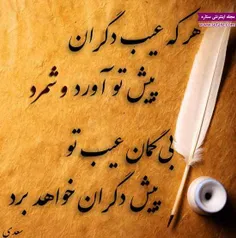 مجله اینترنتی ستاره
هر که عیب دگران
پیش تو آورد و شمرد
بی گمان عیب تو
پیش دگران خواهد برد
سعدی